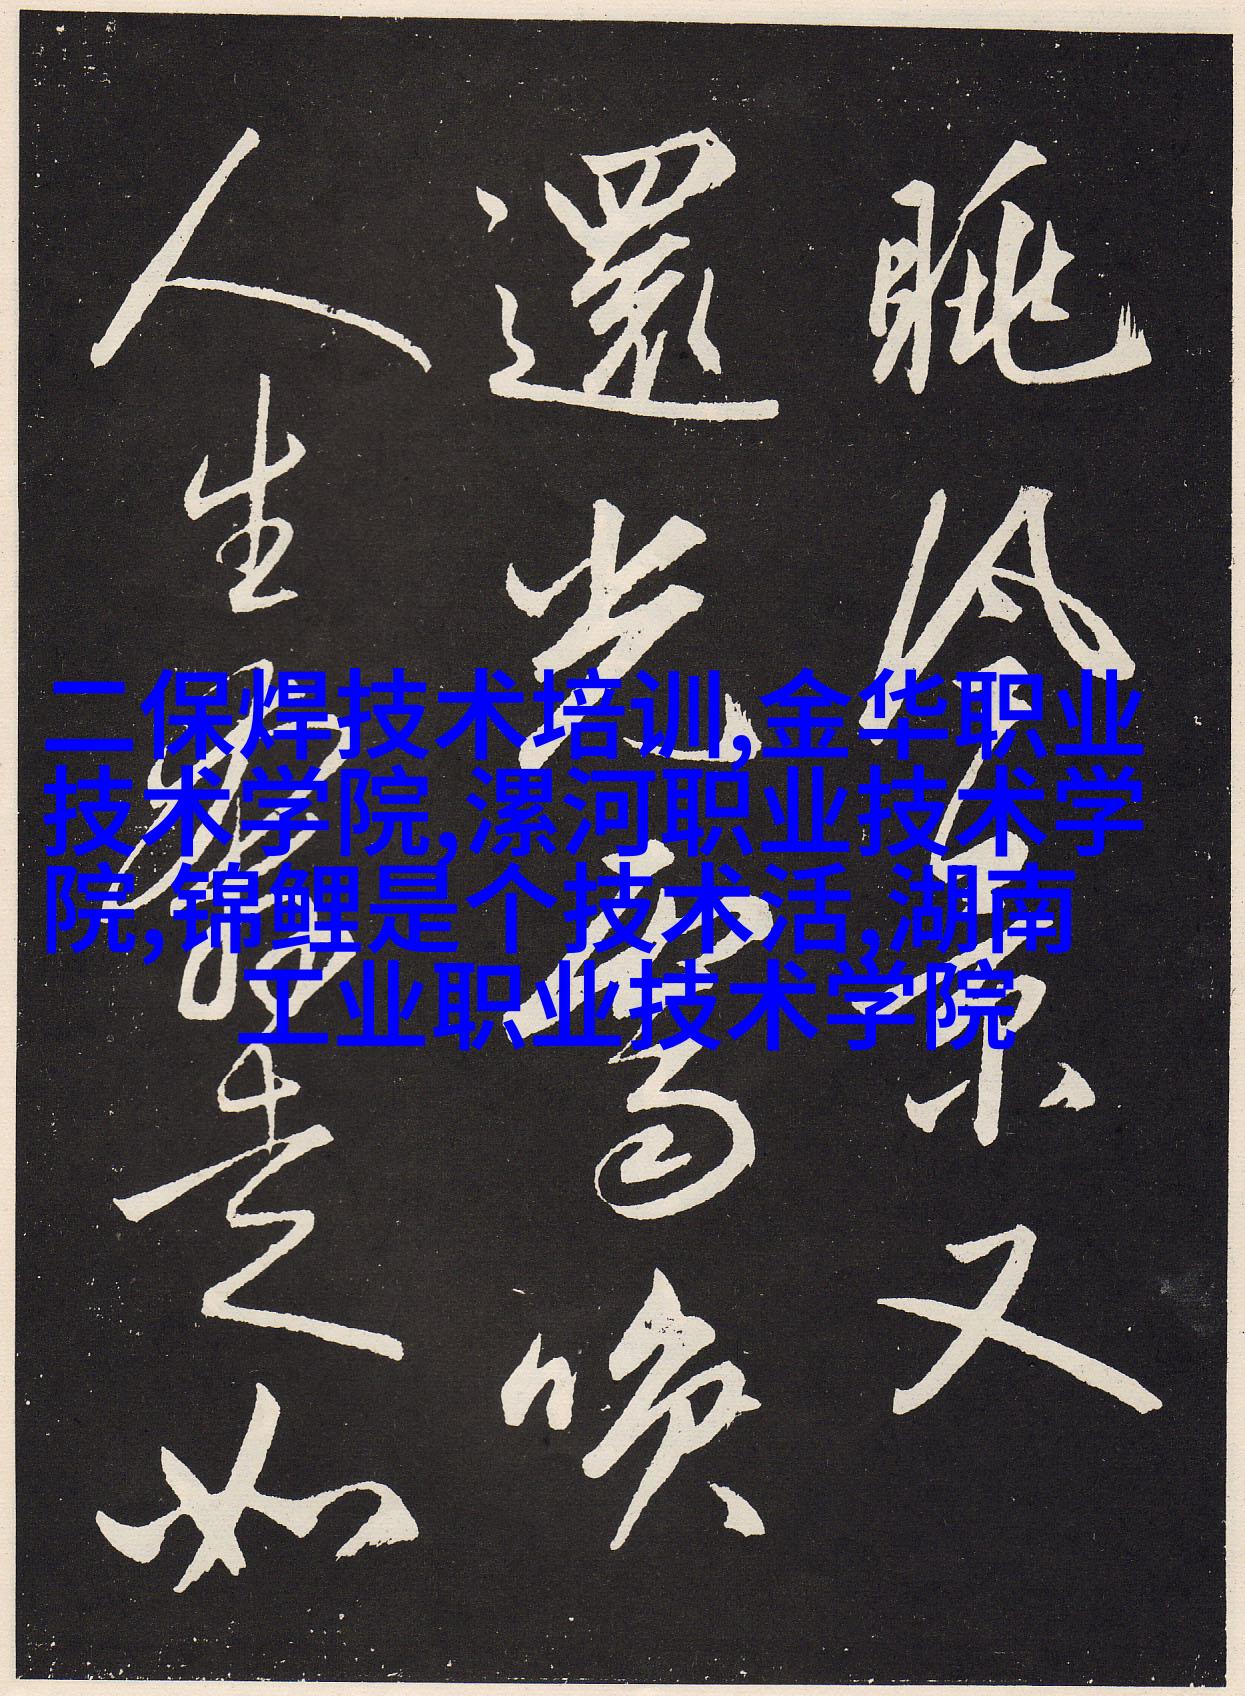 眺又
還光喚
人生走如
二保焊技术培训,金华职业
技术学院,漯河职业技术学
院,锦鲤是个技术活,湖南
工业职业技术学院